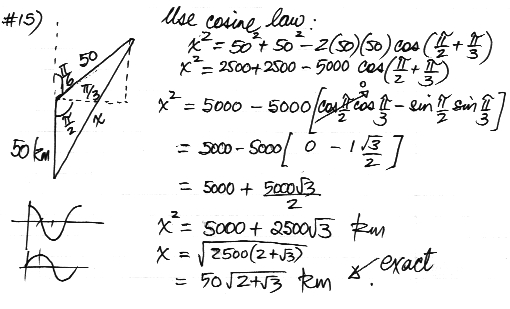 #15)
Use cosine law:
x² = 50² + 50² - 2(50)(50) cos(π/2 + π/3)
x² = 2500+2500 - 5000 cos(π/2 + π/3)
x² = 5000 - 5000[cos π/2 cos π/3 - sin π/2 sin π/3]
0
= 5000 - 5000[ 0 - 1 √3/2 ]
= 5000 + 5000√3/2
x² = 5000 + 2500√3 km
x = √2500(2+√3)
= 50√2+√3 km
exact
50
π/6
π/3
π/2
x
50 km